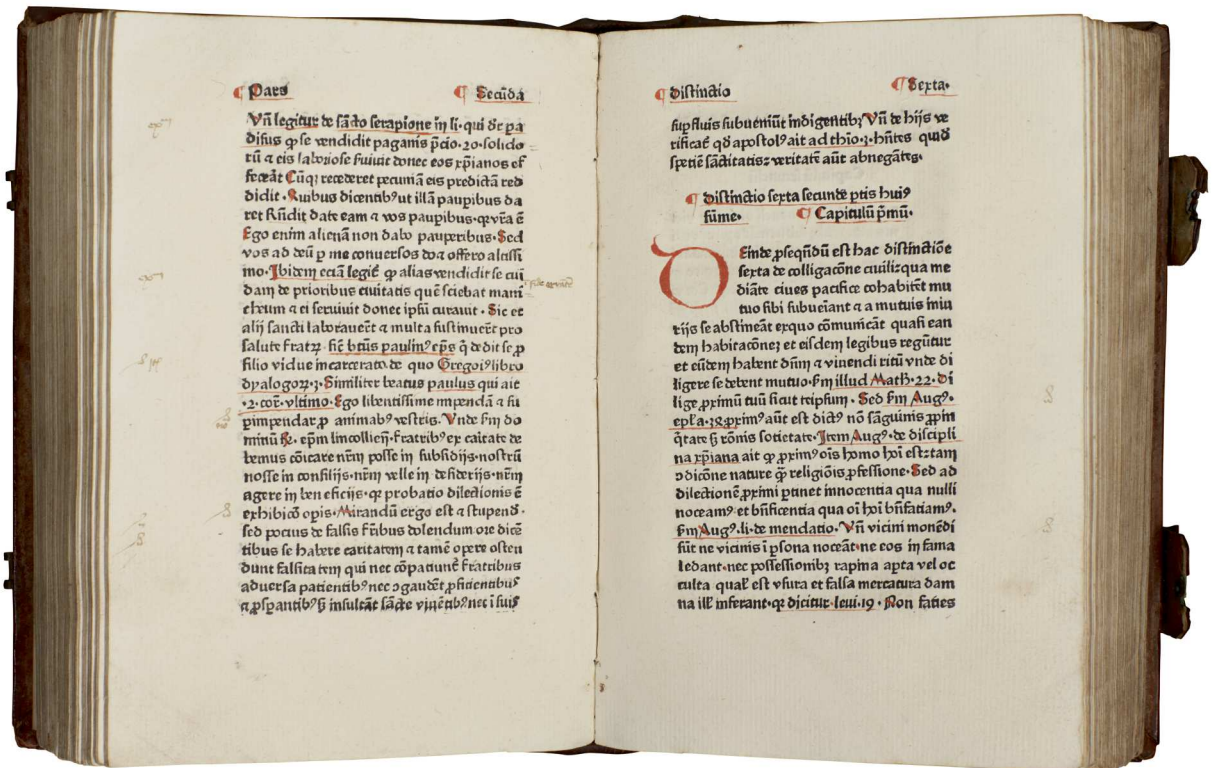 ¶ Pars ¶ Secūda
Vn̄ legitur de sācto serapione in li· qui dr̄ pa
disus ꝙ se vendidit paganis p̄cio·20·solido
rū ⁊ eis laboriose ẜuiuit donec eos xp̄ianos ef
fecāt Cūqꝫ recederet pecuniā eis predictā red
didit · Quibus dicentibꝰ ut illā paupibus da
ret Rn̄dit date eam ⁊ vos paupibus·qꝛ vr̄a ē
Ego enim alienā non dabo pauperibus·Sed
vos ad deū ꝑ me conuersos do ⁊ offero altissi
mo·Ibidem eciā legit̄ ꝙ alias vendidit se cui
dam de prioribus ciuitatis quē sciebat mani
cheum ⁊ ei seruiuit donec ipsū curauit · Sic et
alij sancti laborauer̄t ⁊ multa sustinuer̄t pro
salute fratꝝ· sic̄ btūs paulinꝰ ep̄s q̄ dedit se ꝓ
filio vidue incarcerato de quo Gregoriꝰ libro
dyalogoꝝ·3·Similiter beatus paulus qui ait
·2·cor̄·vltimo·Ego libentissime impendā ⁊ su
ꝑimpendar ꝓ animabꝰ vestris·Vnde ẜm do
minū R̄· ep̄m lincollien̄·Fratribꝰ ex caitate de
bemus cōicare nr̄m posse in subsidijs·nostrū
nosse in consilijs·nr̄m velle in desiderijs·nr̄m
agere in beneficijs·qꝛ probatio dilectionis ē
exhibicō oꝑis·Mirandū ergo est ⁊ stupend̄·
sed pocius de falsis fr̄ibus dolendum·ore dicē
tibus se habere caritatem ⁊ tamē opere osten
dunt falsitatem qui nec cōpatiunt̄ fratribus
aduersa patientibꝰ nec ↄgaudēt ꝓficientibus
⁊ ꝓsꝑantibꝰ s̄ insultāt sācte viuētibꝰ nec ī suis
¶ Distinctio ¶ Sexta·
suꝑfluis subueniūt indigentibꝫ Vn̄ de hijs ve
rificat̄ qd̄ apostolꝰ ait ad thio·3·hn̄tes quid̄
spetiē sāctitatis⁊ veritatē aūt abnegātes·
¶ Distinctio sexta secunde ꝑtis huiꝰ
sūme· ¶ Capitulū p̄mū·
DEinde ꝓseqn̄dū est hac distinctiōe
sexta de colligacōne ciuili⁊ qua me
diāte ciues pacifice cohabitēt mu
tuo sibi subueiant ⁊ a mutuis iniu
rijs se abstineāt exquo cōmunicāt quasi ean
dem habitacōne⁊ et eisdem legibus regūtur
et eūdem habent dn̄m ⁊ viuendi ritū vnde di
ligere se debent mutuo·ẜm illud Math·22·Di
lige ꝓximū tuū sicut teipsum · Sed ẜm Augꝰ·
epl̄a·38·ꝓximꝰ aūt est dictꝰ nō sāguinis ꝓpin
q̄tate s̄ rōnis societate·Item Augꝰ·de discipli
na xp̄iana ait ꝙ ꝓximꝰ oīs homo hoī est⁊ tam
ↄdicōne nature q̄ religiōis ꝓfessione·Sed ad
dilectionē ꝓximi ꝑtinet innocentia qua nulli
noceamꝰ et bn̄ficentia qua oī hoī bn̄fatiamꝰ·
ẜm Augꝰ·li·de mendatio·Vn̄ vicini monēdi
sūt ne vicinis ī ꝑsona noceāt·ne eos in fama
ledant·nec possessionibꝫ rapina aꝑta vel oc
culta qual̄ est vsura et falsa mercatura dam
na ill̄ inferant·qꝛ dicitur·leui·19·Non faties